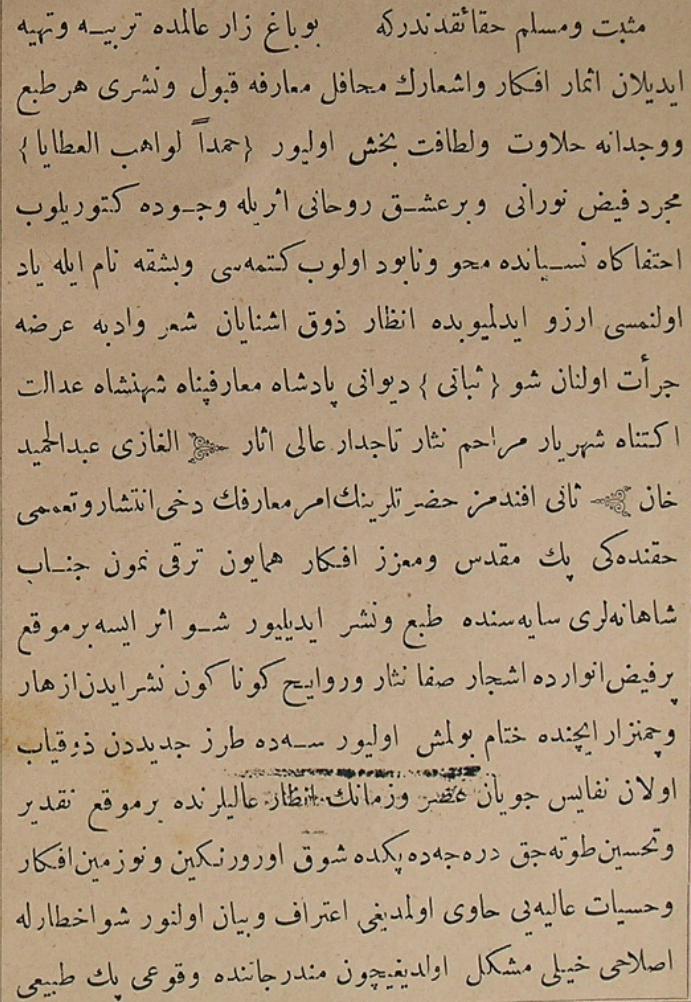 مثبت ومسلم حقائقدندركه بوباغ زار عالمده تربيه وتهيه
ايديلان اثمار افكار واشعارك محافل معارفه قبول ونشرى هر طبع
ووجدانه حلاوت ولطافت بخش اوليور {حمداً لواهب العطايا}
مجرد فيض نورانى وبرعشق روحانى اثريله وجوده كتوريلوب
احتفاكاه نسيانده محو ونابود اولوب كتمه‌سى وبشقه نام ايله ياد
اولنمسى ارزو ايدلميوبده انظار ذوق اشنايان شعر وادبه عرضه
جرأت اولنان شو {ثباتى} ديوانى پادشاه معارفپناه شهنشاه عدالت
اكتناه شهريار مراحم نثار تاجدار عالى اثار الغازى عبدالحميد
خان ثانى افندمز حضرتلرينك امر معارفك دخى انتشار وتعممى
حقنده‌كى پك مقدس ومعزز افكار همايون ترقى نمون جناب
شاهانه‌لرى سايه‌سنده طبع ونشر ايديليور شو اثر ايسه برموقع
پرفيض انوارده اشجار صفا نثار وروايح كوناكون نشرايدن ازهار
وچمنزار ايچنده ختام بولمش اوليور سه‌ده طرز جديددن ذوقياب
اولان نفايس جويان عصر وزمانك انظار عاليلرنده برموقع تقدير
وتحسين طوته‌جق دره‌جه‌ده پكده شوق اور ورنكين ونوزمين افكار
وحسيات عاليه‌يى حاوى اولمديغى اعتراف وبيان اولنور شو اخطارله
اصلاحى خيلى مشكل اولديغيچون مندرجاتنده وقوعى پك طبيعى